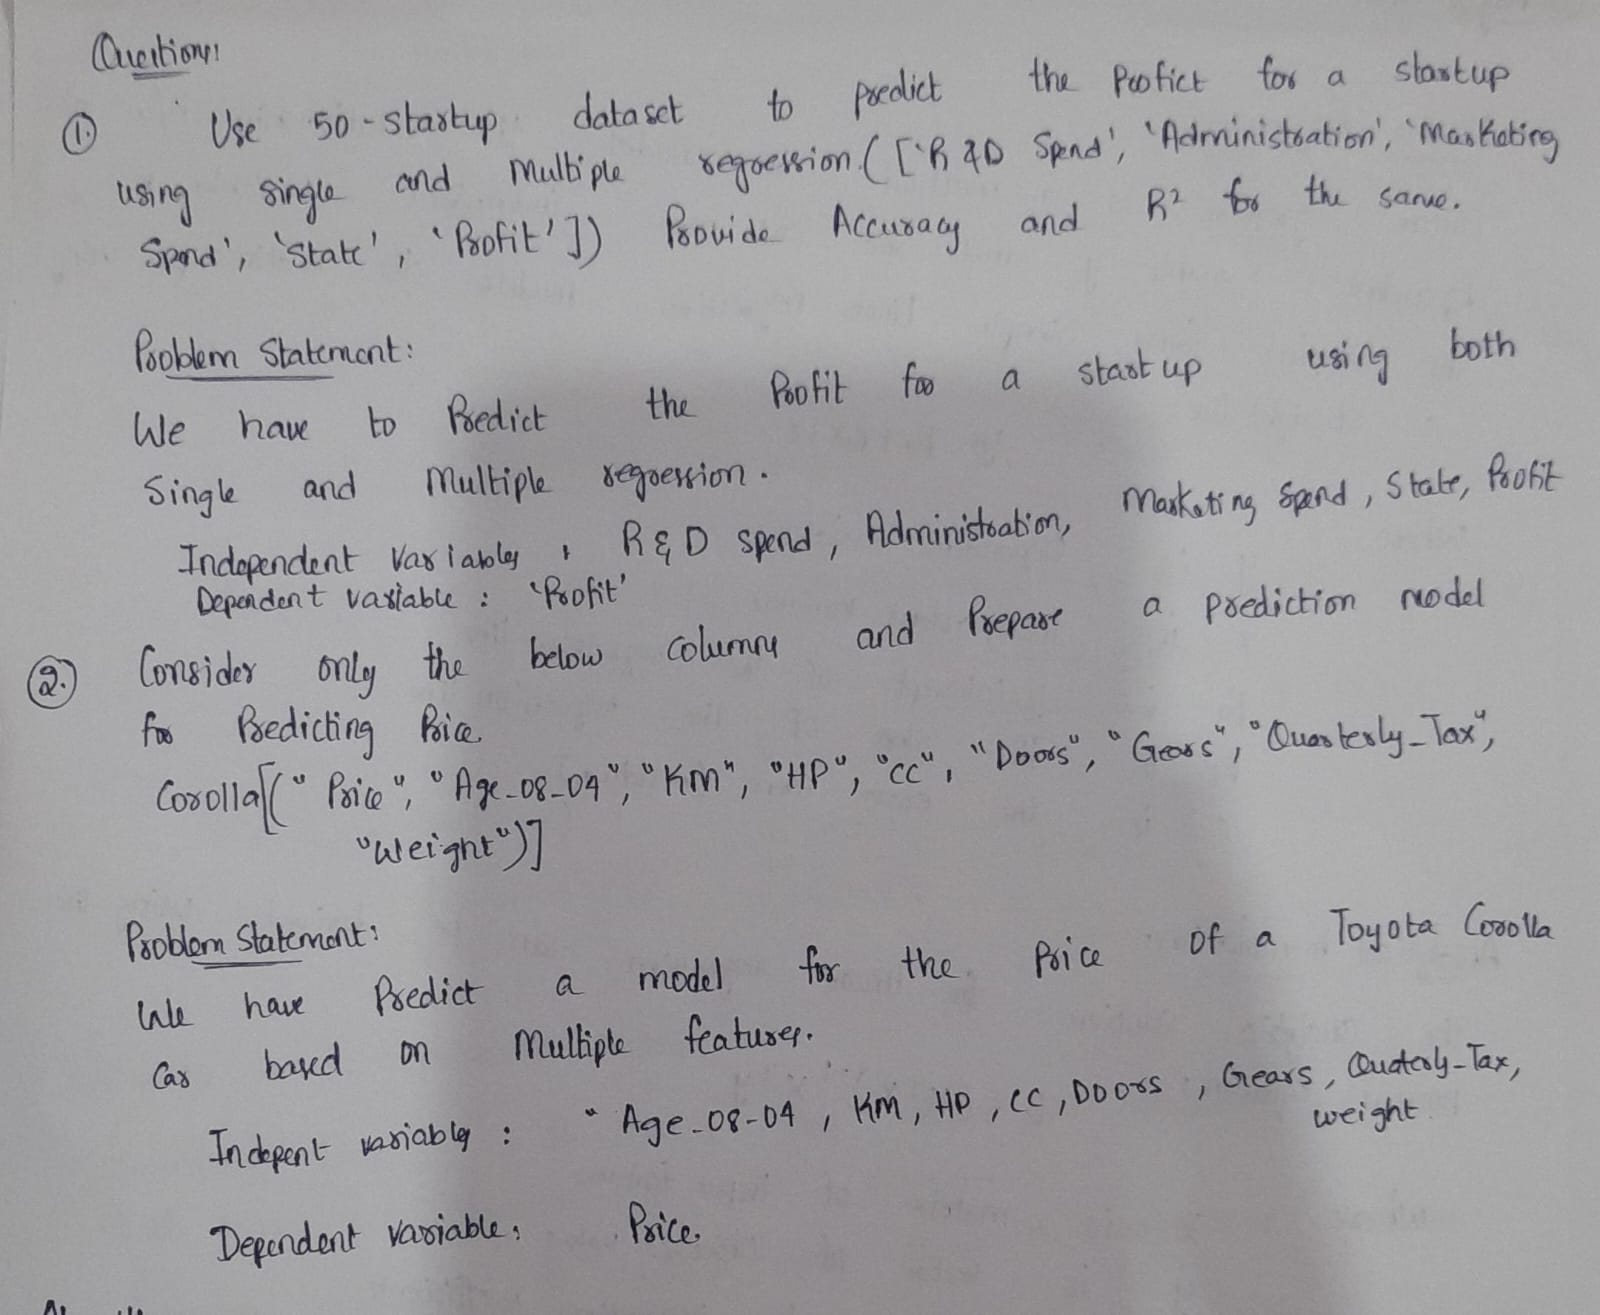 Questions:
① Use 50-startup dataset to predict the Profict for a startup
using single and Multiple regression (['R &D Spend', 'Administration', 'Marketing
Spend', 'State', 'Profit']) Provide Accuracy and R² for the same.
Problem Statement:
We have to Predict the Profit for a start up using both
Single and Multiple regression.
Independent Variables : R & D spend, Administration, Marketing Spend, State, Profit
Dependent variable : 'Profit'
②. Consider only the below columns and Prepare a prediction model
for Predicting Price
Corolla[("Price", "Age-08-04", "Km", "HP", "CC", "Doors", "Gears", "Quarterly_Tax",
"Weight")]
Problem Statement:
We have Predict a model for the Price of a Toyota Corolla
Car based on Multiple features.
Indepent variables : " Age-08-04, KM, HP, CC, Doors, Gears, Quaterly-Tax,
weight
Dependent Variable: Price.